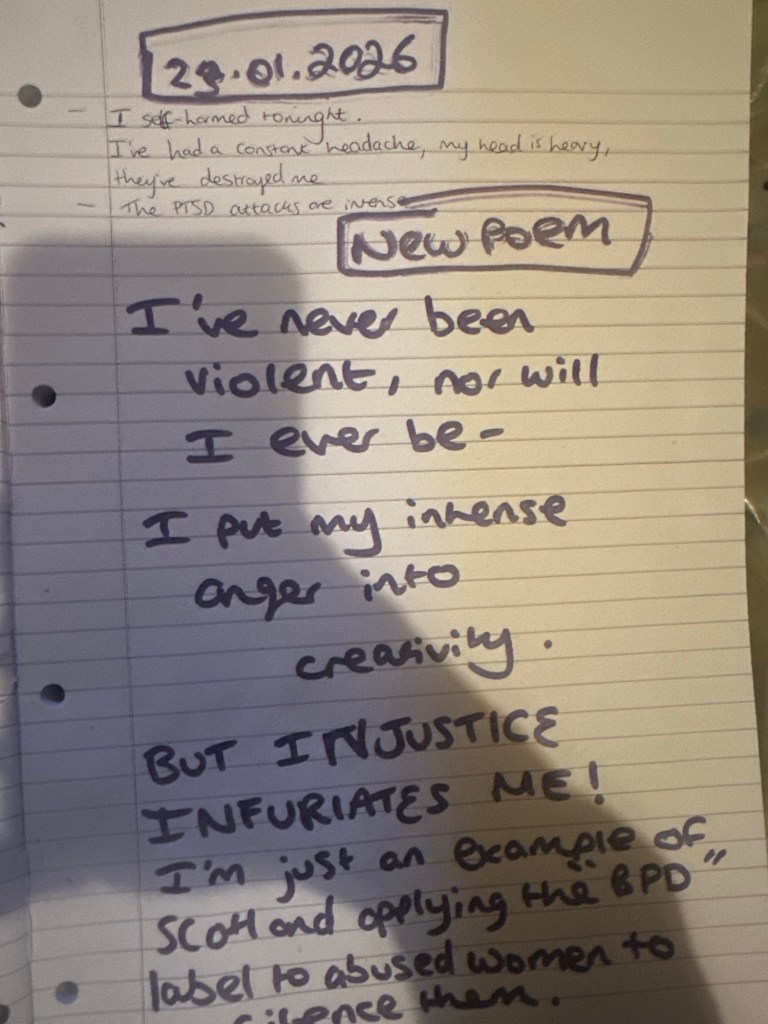 29.01.2026
- I self-harmed toninght.
I've had a constant headache, my head is heavy,
they've destroyed me
- The PTSD attacks are intense
New Poem
I've never been
violent, nor will
I ever be-
I put my intense
anger into
creativity.
BUT INJUSTICE
INFURIATES ME!
I'm just an example of
Scotland applying the "BPD"
label to abused women to
silence them.